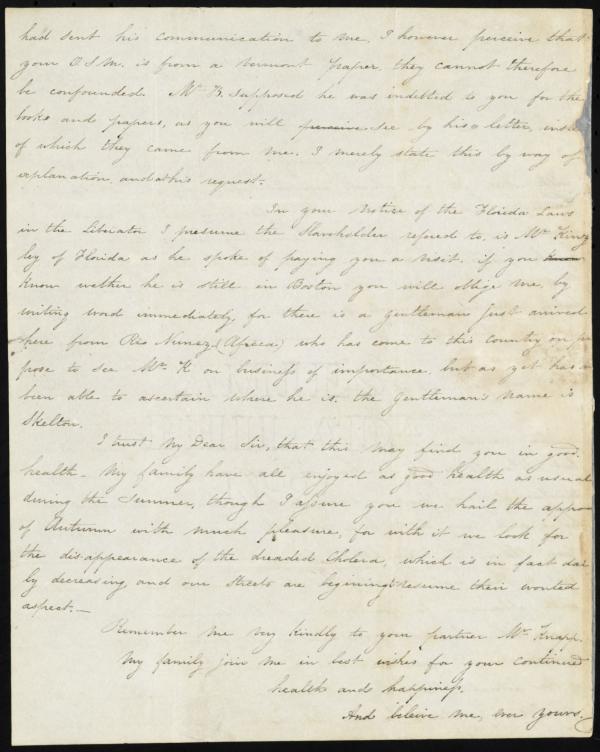 had sent his communication to me, I however perceive that
your O.S.M. is from a Vermont paper, they cannot therefore
be confounded. Mr B. supposed he was indebted to you for the
books and papers, as you will perceive see by his letter, inste
of which they came from me. I merely state this by way of
explanation, and at his request.
In your Notice of the Florida Laws
in the Liberator I presume the Slaveholder refered to, is Mr Kings
ley of Florida as he spoke of paying you a visit. if you know
know wether he is still in Boston you will oblige me, by
writing word immediately, for there is a gentleman just arrived
here from Rio Nunez, (Africa) who has come to this country on pur
pose to see Mr K on business of importance, but as yet has n
been able to ascertain where he is. the Gentleman's name is
Skelton.
I trust My Dear Sir, that this may find you in good
health— My family have all enjoyed as good health as usual
during the Summer, though I assure you we hail the appro
of Autumn with much pleasure, for with it we look for
the disappearance of the dreaded Cholera, which is in fact dai
ly decreasing, and our Streets are begining to resume their wonted
aspect.—
Remember me very kindly to your partner Mr Knapp.
My family join me in best wishes for your continued
health and happiness.
And beleive me, ever yours,